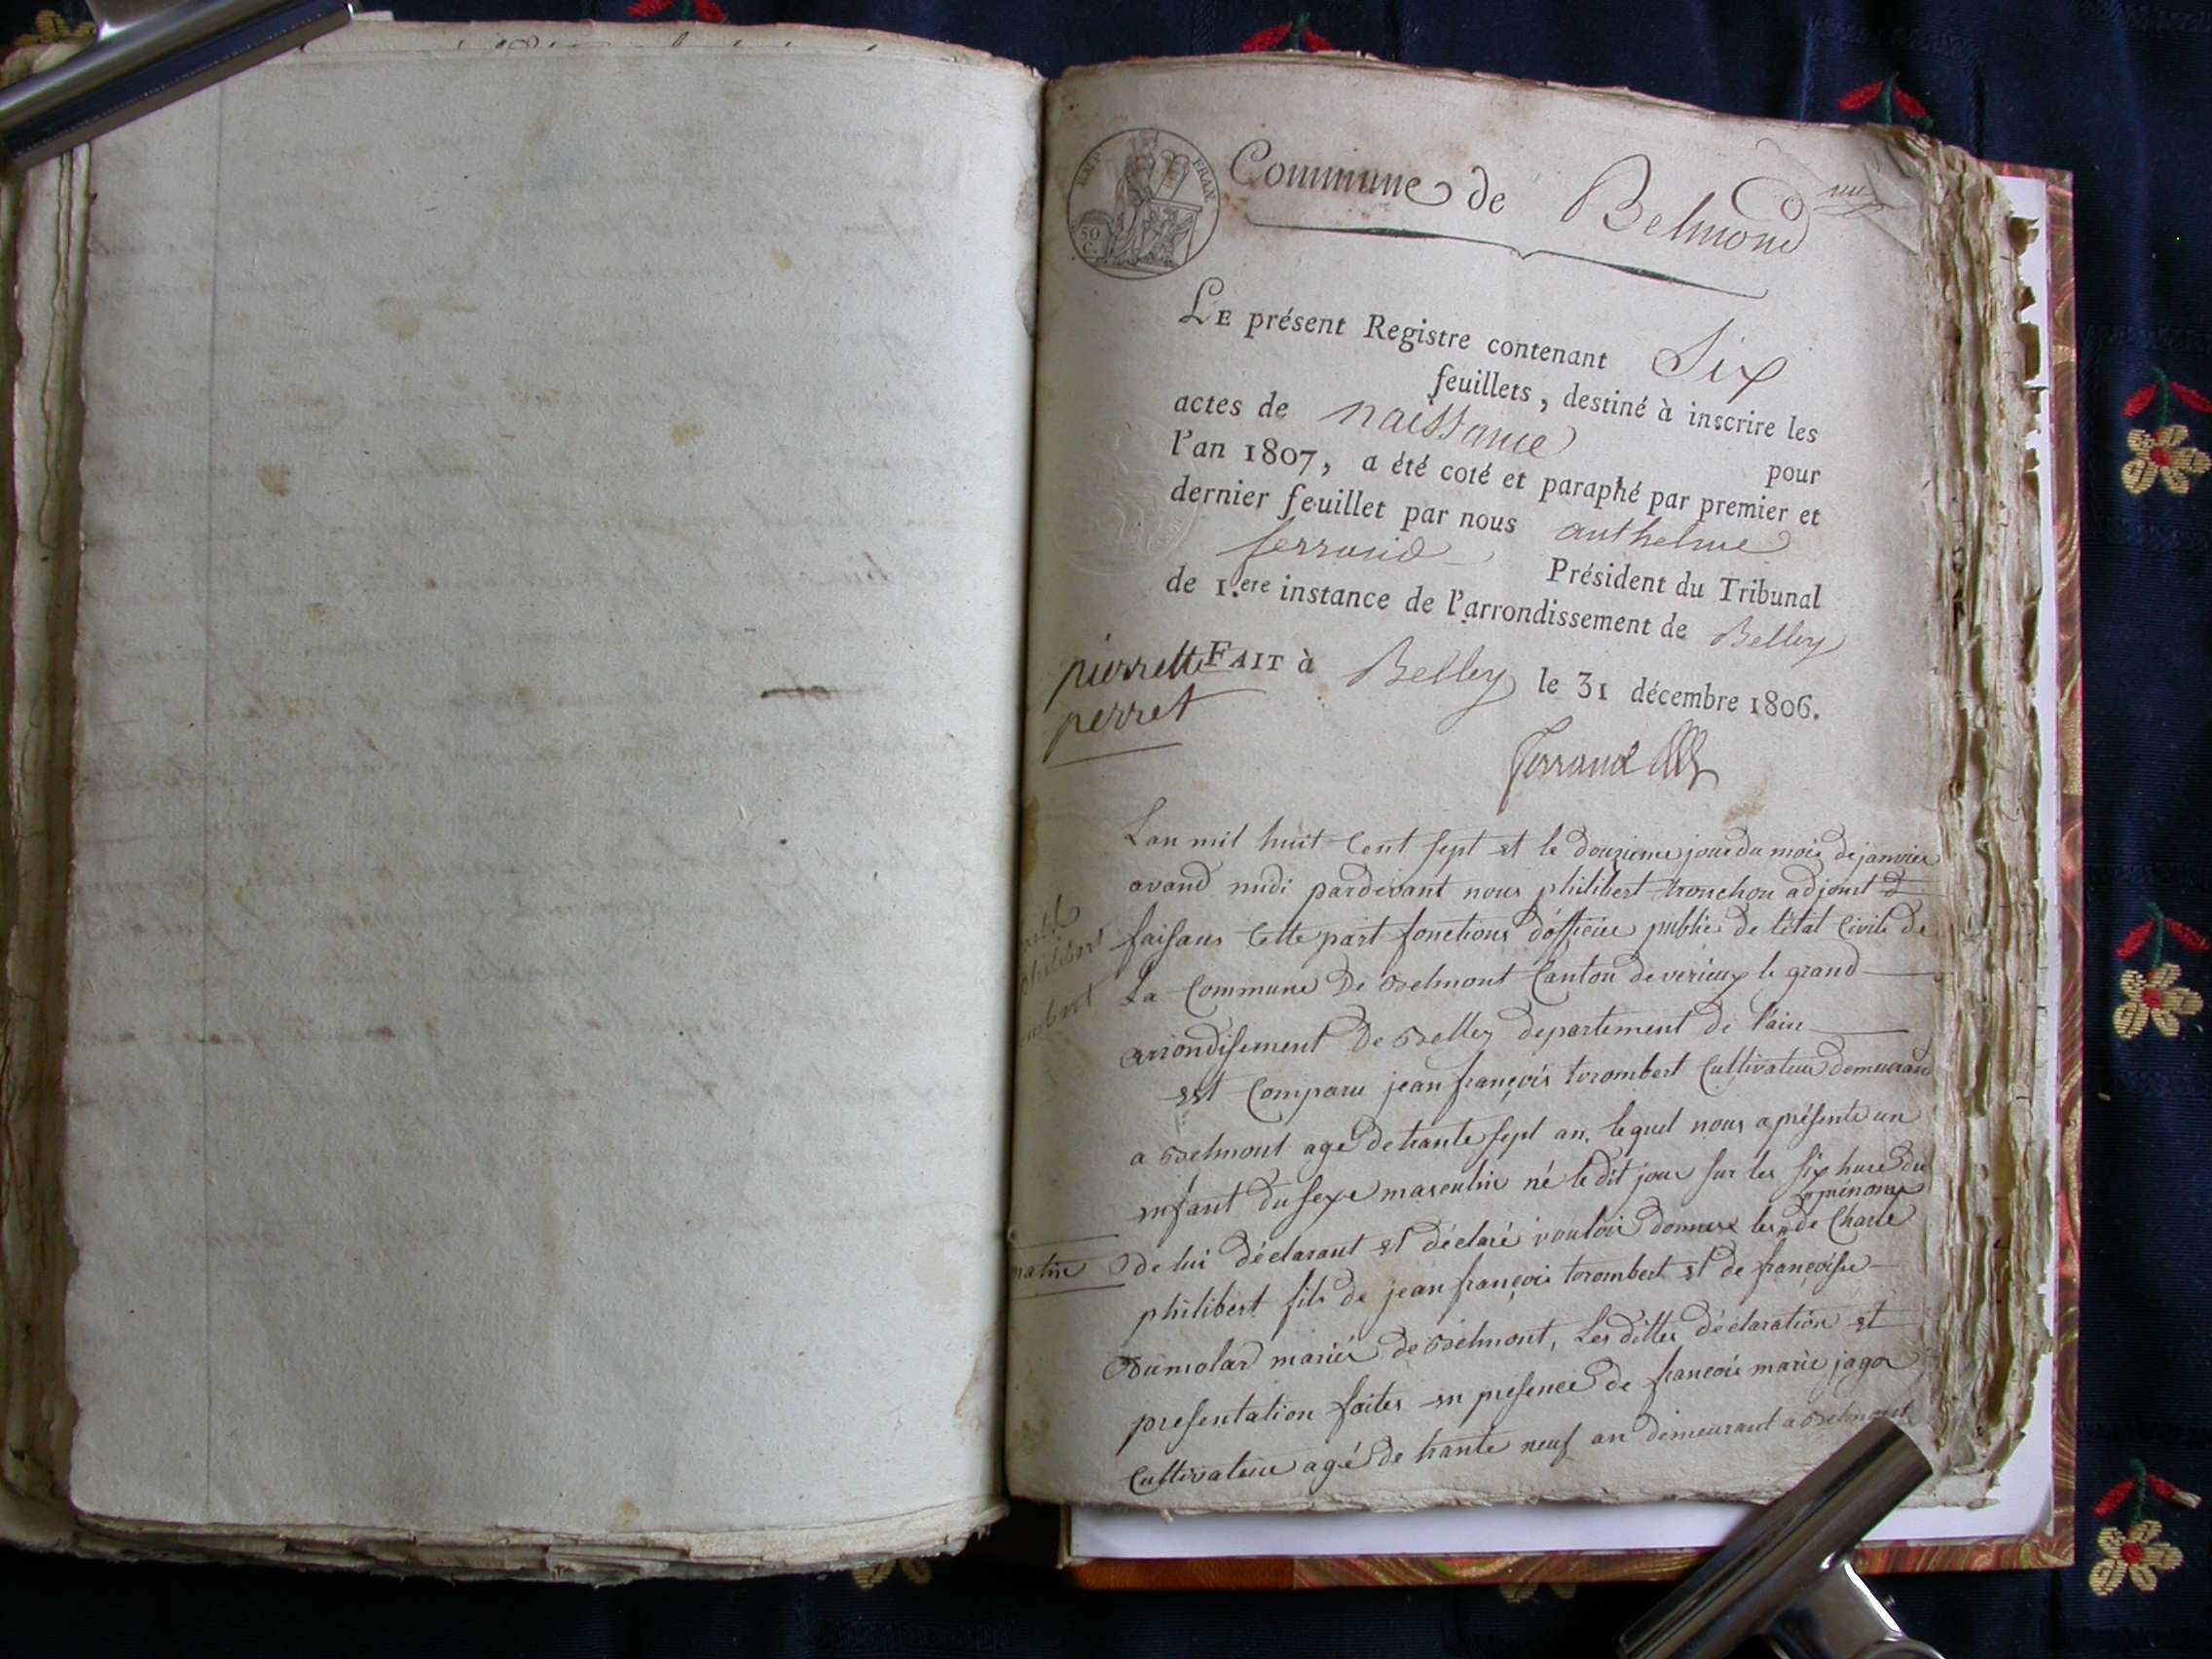 EMP. FRAN.
50
C.
Commune de Belmond
un
LE présent Registre contenant Six
feuillets, destiné à inscrire les
actes de naissance pour
l'an 1807, a été coté et paraphé par premier et
dernier feuillet par nous anthelme
ferrand Président du Tribunal
de 1.ere instance de l'arrondissement de Belley
FAIT à Belley le 31 décembre 1806.
pierrette
perret
ferrand
Lan mil huit Cent sept et le douzieme jour du mois de janvier
avand midi pardevant nous philibert tronchon adjoint
faisans Cette part fonctions d'officier public de l'état Civile de
La Commune De Belmont Canton de virieux le grand
arrondisement De Belley departement de l'ain
est Comparu jean françois trombert Cultivateur demeurand
a Belmont agé de trante sept an, lequel nous a présenté un
enfant du sexe masculin né le dit jour sur les six hure du
matin De lui déclarant et déclaré vouloir donner les prénoms de Charle
philibert fils de jean françois torombert et de françoise
Dumolar mariés de Belmont, Les dittes déclaration et
presentation faites en presence de francois marie jagot
Cultivateur agé de trante neuf an demeurant a Belmont
philibert